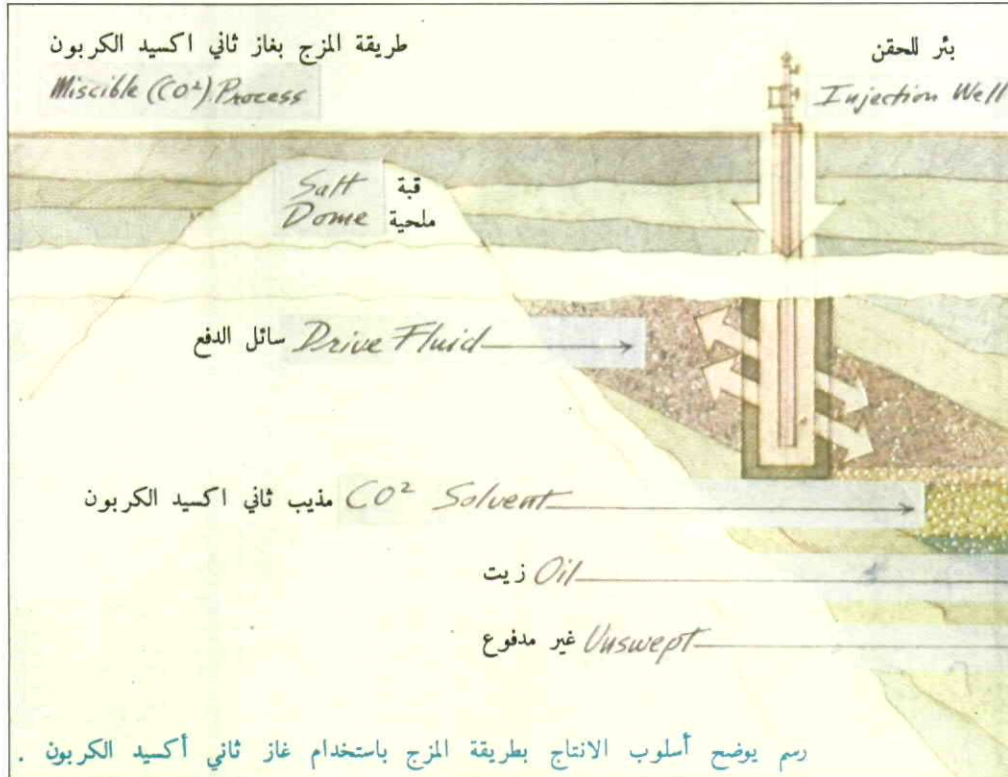 طريقة المزج بغاز ثاني اكسيد الكربون
Miscible (CO²) Process
بئر للحقن
Injection Well
قبة Salt
ملحية Dome
سائل الدفع Drive Fluid
مذيب ثاني اكسيد الكربون CO² Solvent
زيت Oil
غير مدفوع Unswept
رسم يوضح أسلوب الانتاج بطريقة المزج باستخدام غاز ثاني أكسيد الكربون .